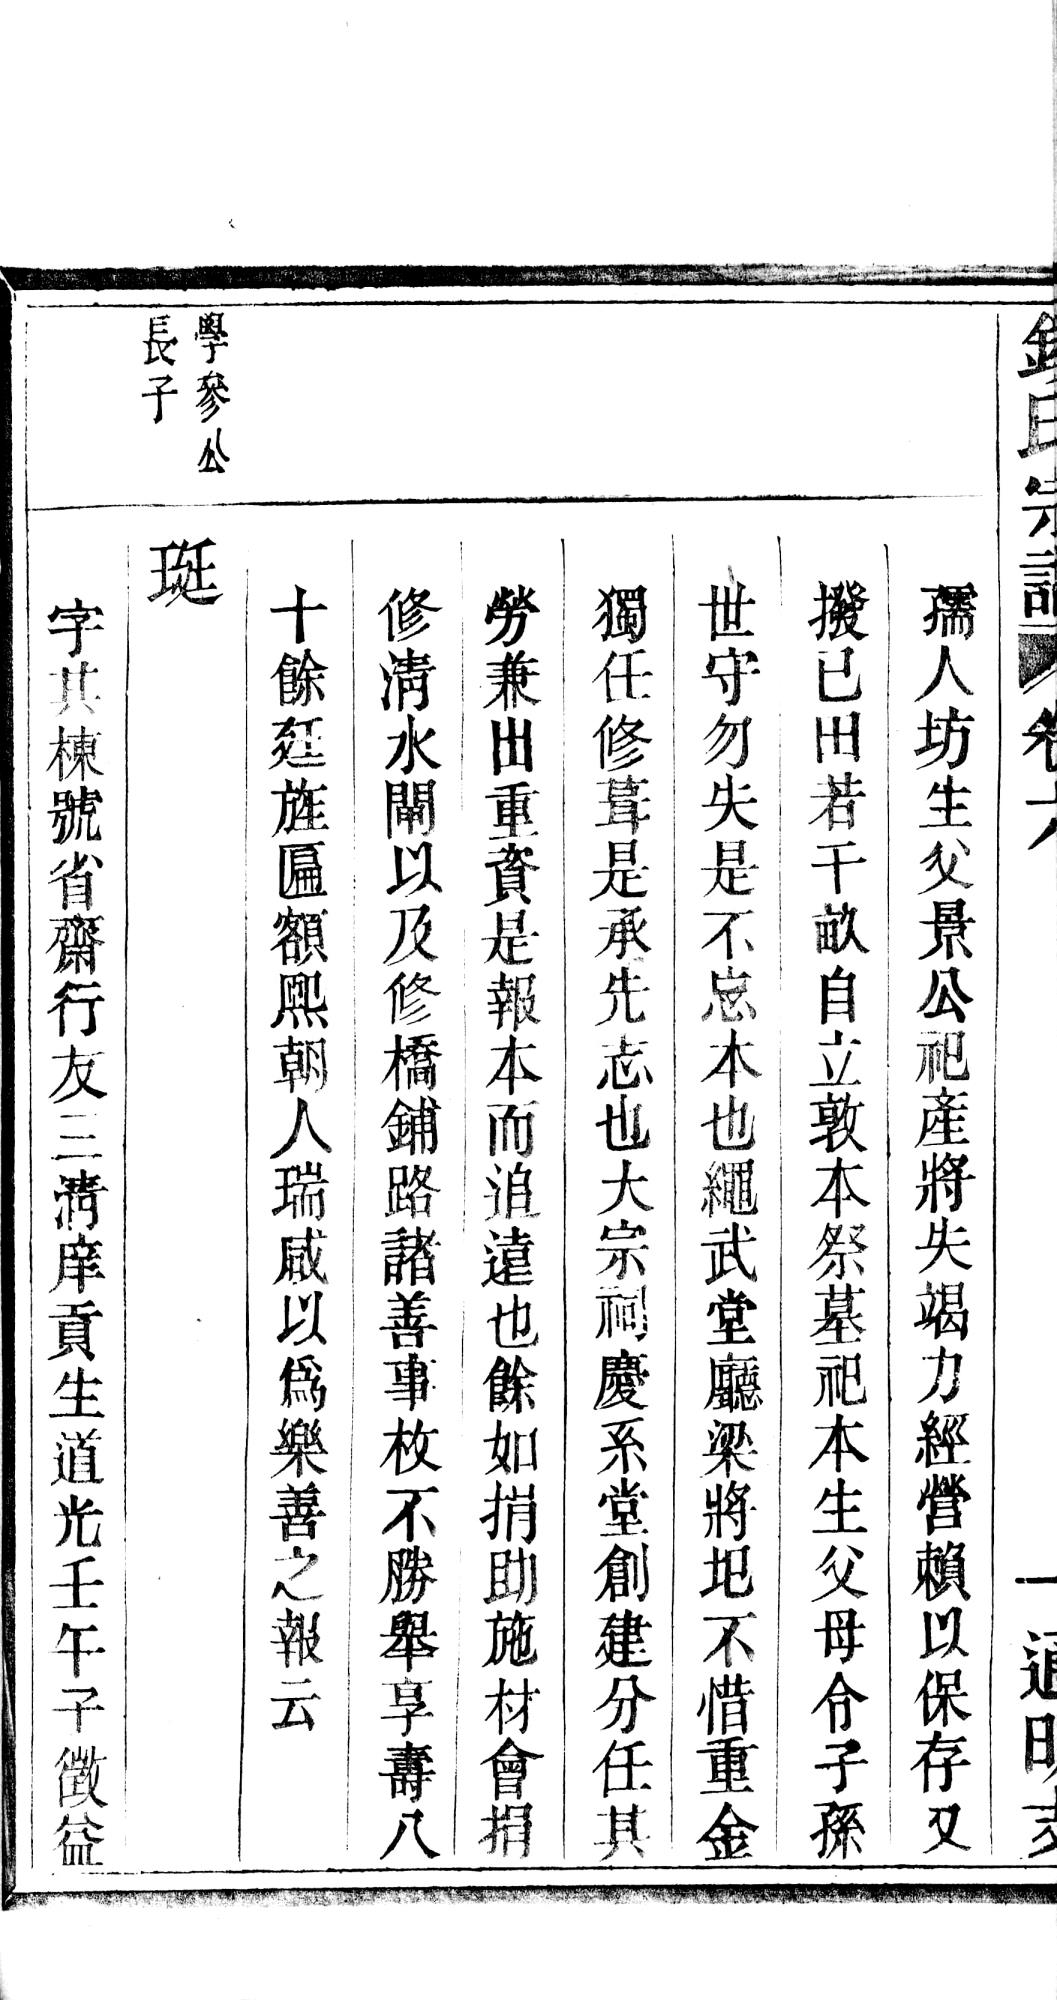 氏宗譜 卷六 一 通明支
孺人坊生父景公祀產將失竭力經營賴以保存又
撥已田若干畝自立敦本祭墓祀本生父母令子孫
世守勿失是不忘本也繩武堂廳梁將圯不惜重金
獨任修葺是承先志也大宗祠慶系堂創建分任其
勞兼出重資是報本而追遠也餘如捐助施材會捐
修清水閘以及修橋鋪路諸善事枚不勝舉享壽八
十餘廷旌匾額熙朝人瑞咸以爲樂善之報云
學參公
長子
珽
字其棟號省齋行友三清庠貢生道光壬午子徵益